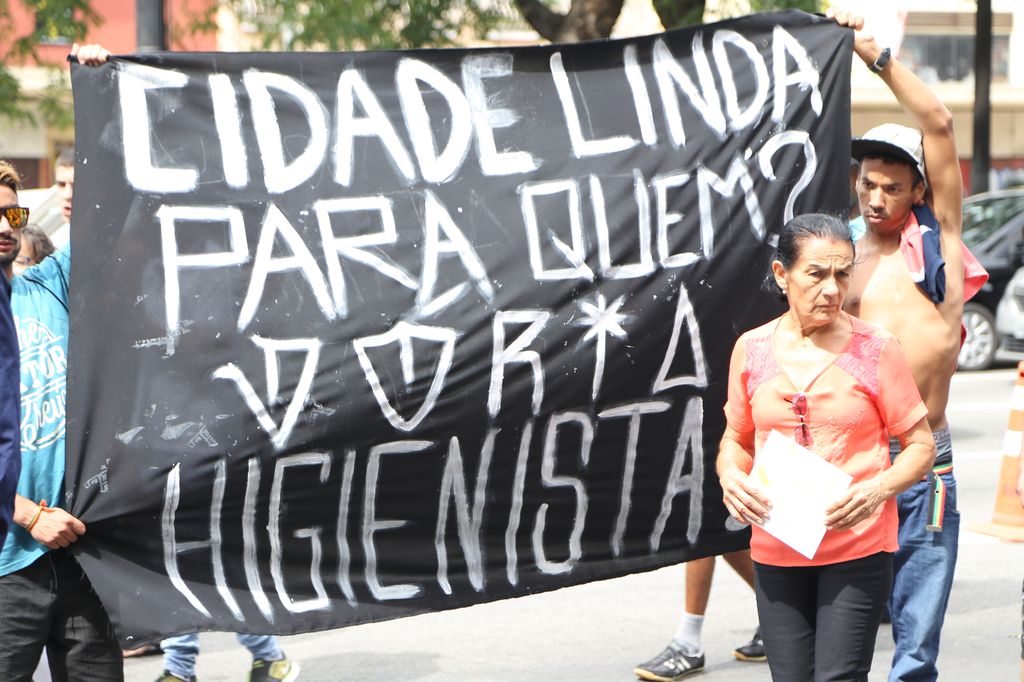 CIDADE LINDA
PARA QUEM?
DÓRIA
HIGIENISTA!